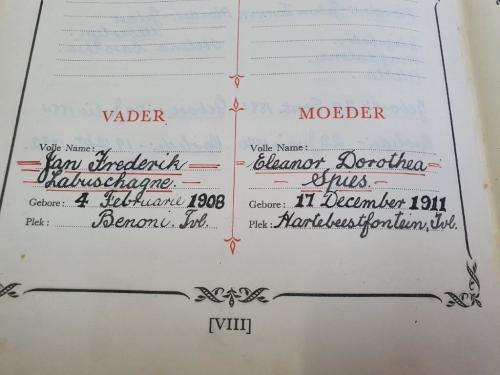 VADER
Volle Name:
Jan Frederik
Labuschagne.
Gebore: 4 Februarie 1908
Plek: Benoni. Tvl.
MOEDER
Volle Name:
Eleanor Dorothea
Spies.
Gebore: 17 December 1911
Plek: Hartebeestfontein, Tvl.
[VIII]